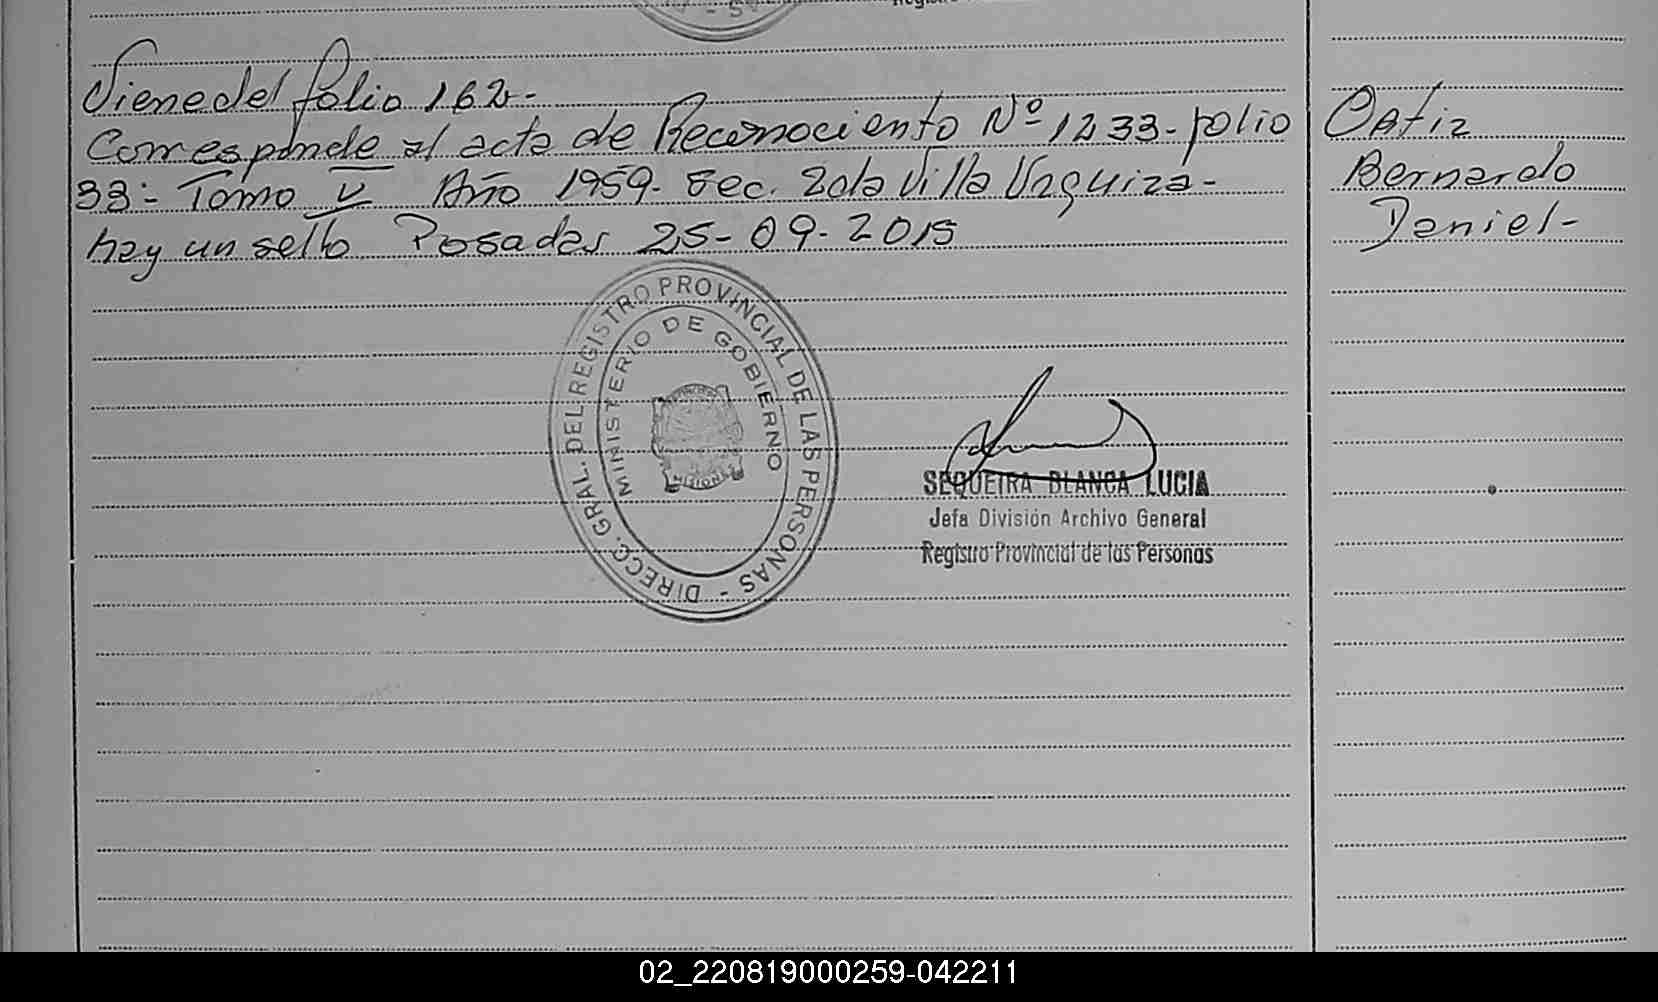 Viene del folio 162-
Corresponde al acta de Reconociento Nº 1233- folio
33- Tomo V Año 1959- Sec. 2da Villa Urquiza-
hay un sello Posadas 25-09-2015
Ortiz
Bernardo
Daniel-
DIRECC. GRAL. DEL REGISTRO PROVINCIAL DE LAS PERSONAS -
MINISTERIO DE GOBIERNO
MISIONES
SEQUEIRA BLANCA LUCIA
Jefa División Archivo General
Registro Provincial de las Personas
02_220819000259-042211